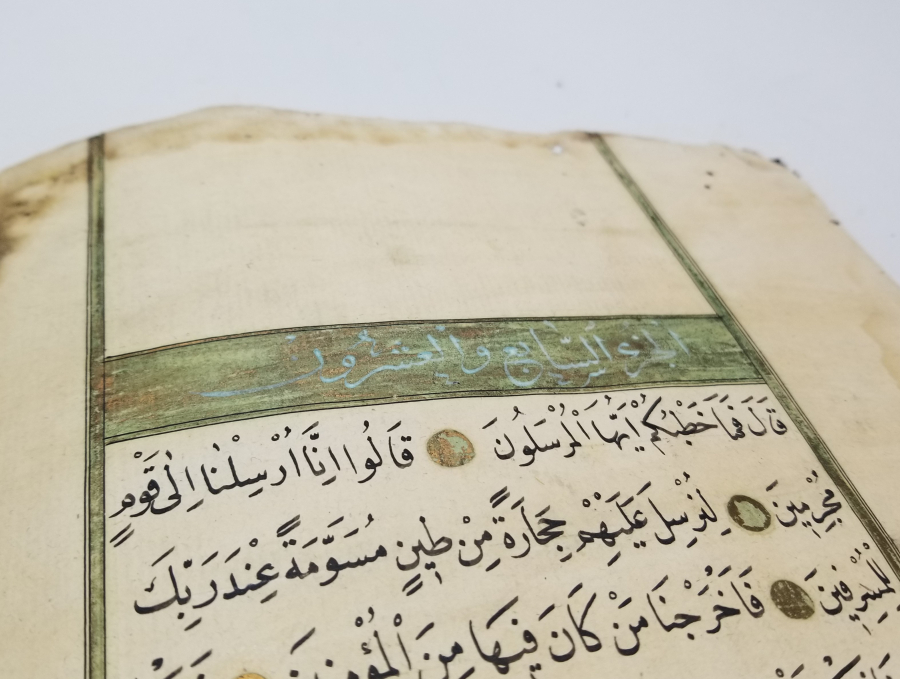 الجزء السابع والعشرون
قَالَ فَمَا خَطْبُكُمْ اَيُّهَا الْمُرْسَلُونَ قَالُوا اِنَّا اُرْسِلْنَا اِلٰى قَوْمٍ
مُجْرِمِينَ لِنُرْسِلَ عَلَيْهِمْ حِجَارَةً مِنْ طِينٍ مُسَوَّمَةً عِنْدَ رَبِّكَ
لِلْمُسْرِفِينَ فَاَخْرَجْنَا مَنْ كَانَ فِيهَا مِنَ الْمُؤْمِنِينَ